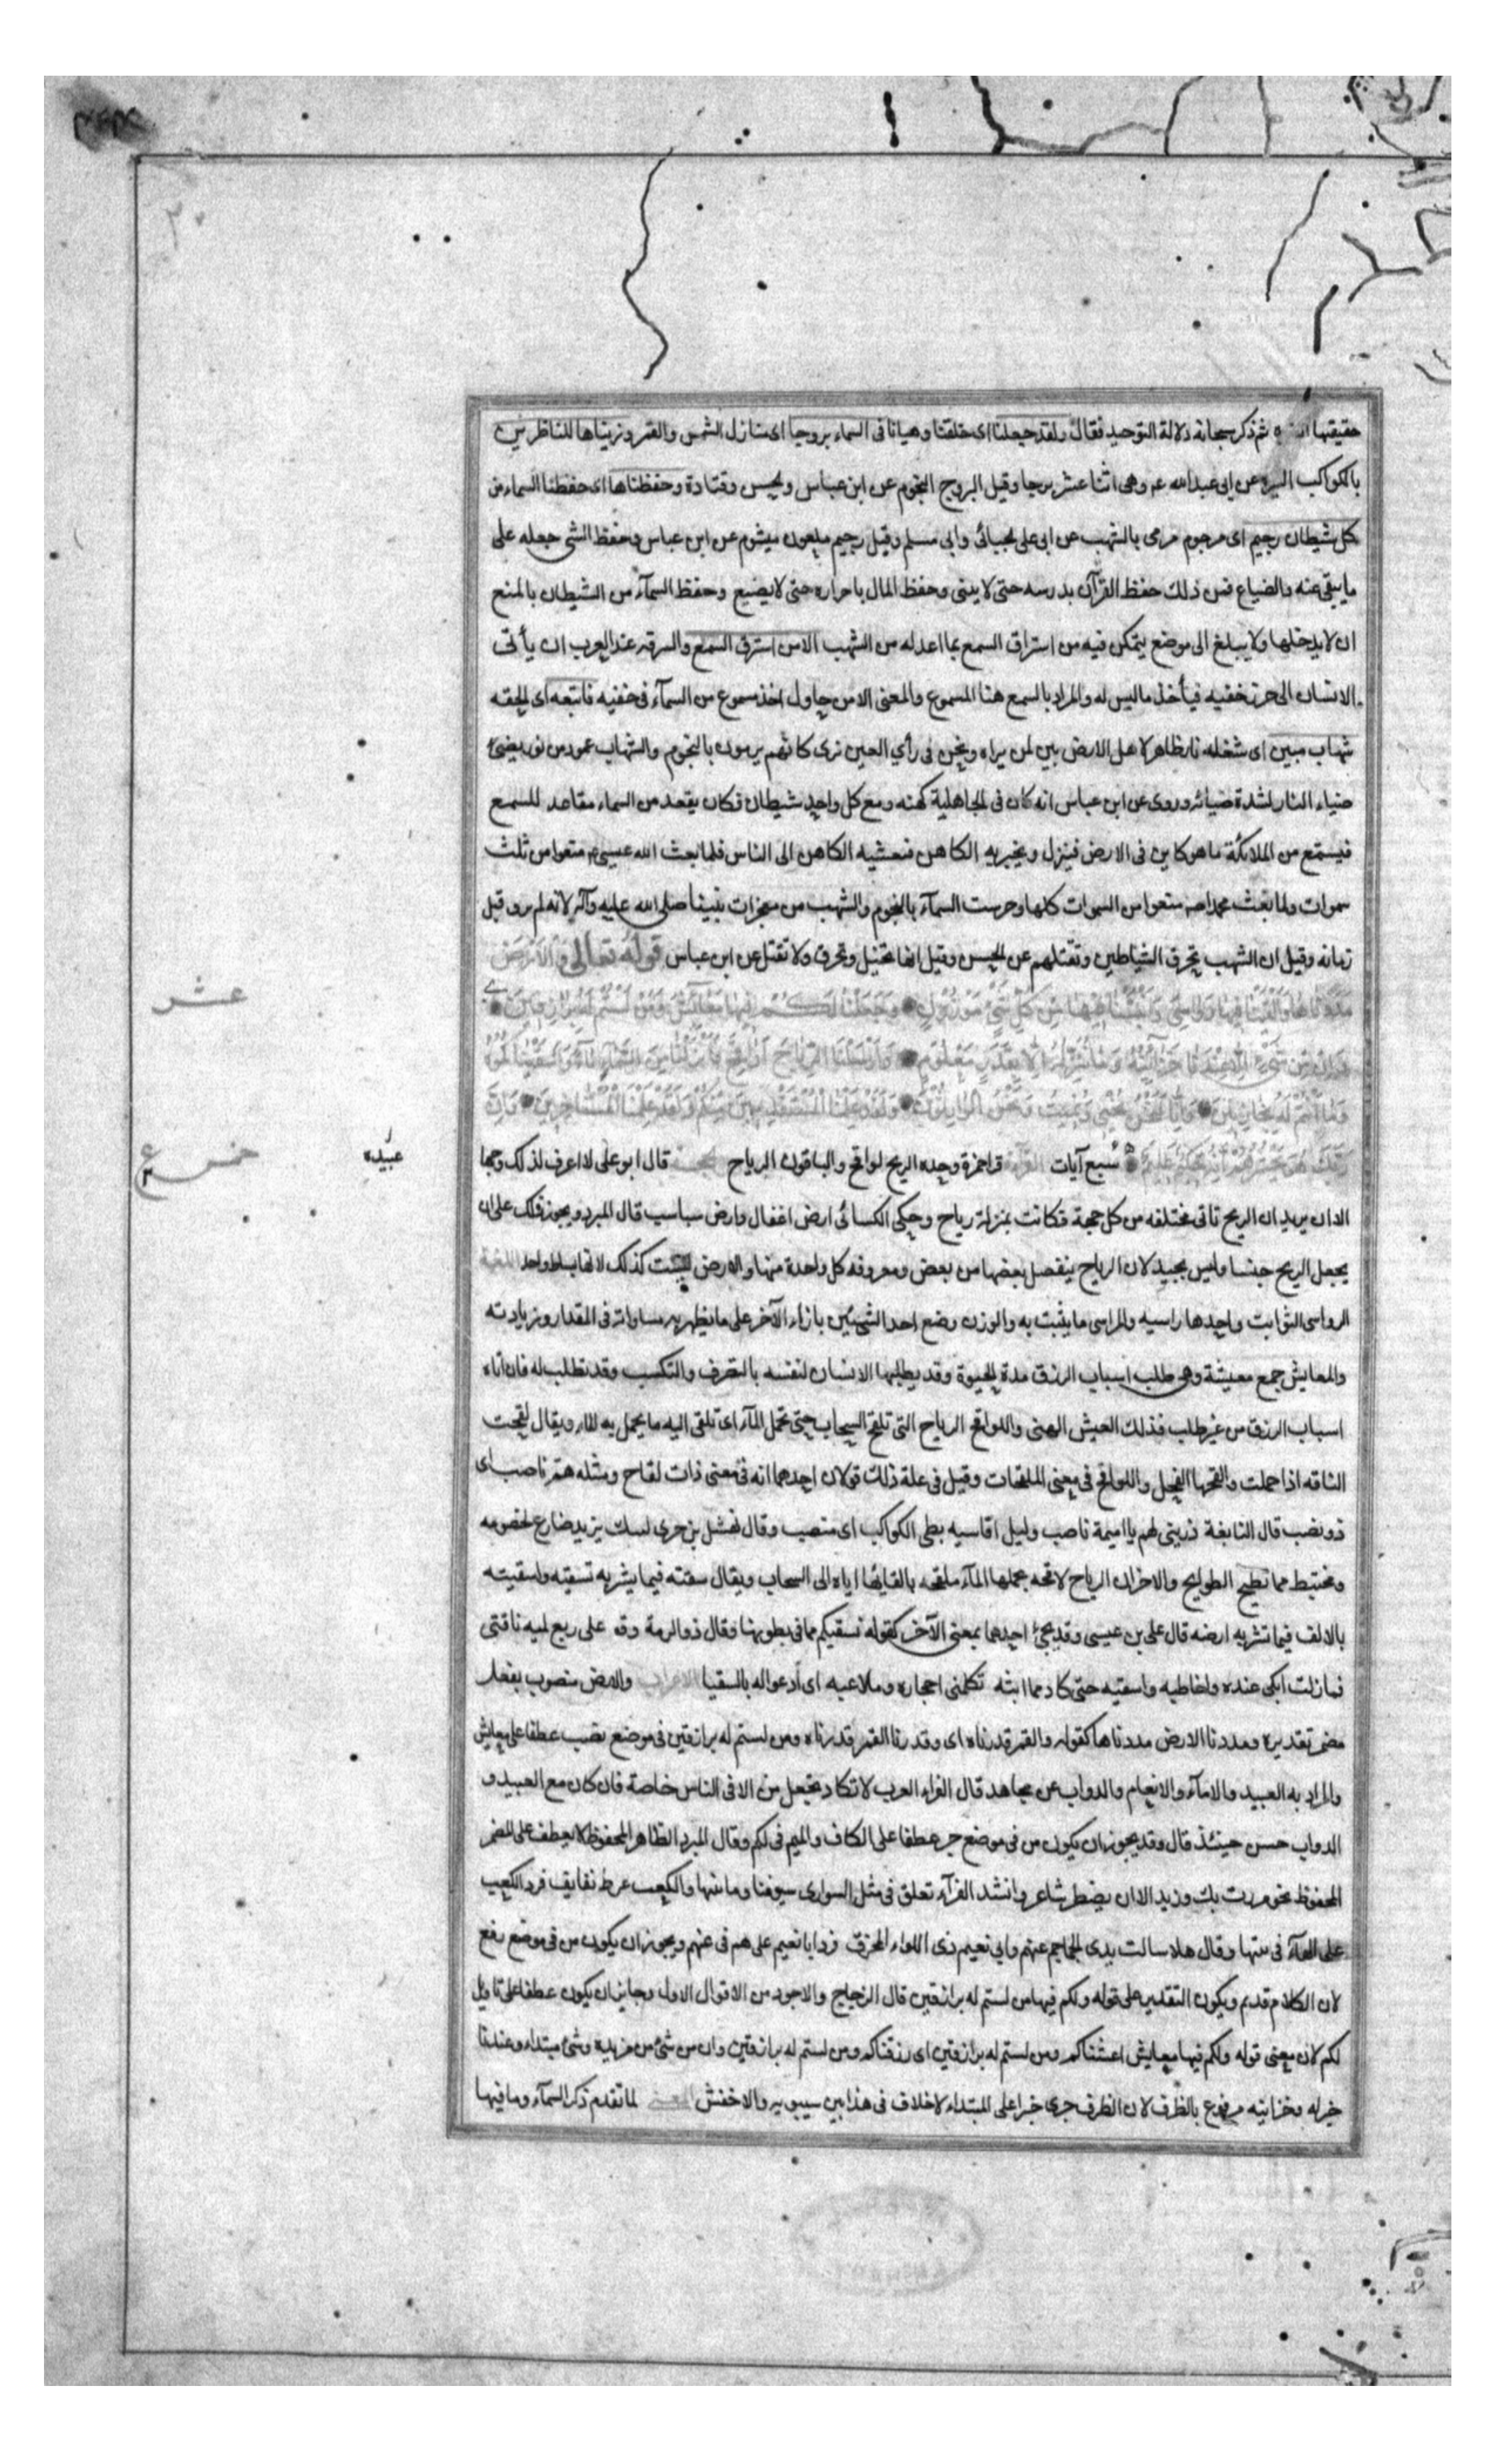 حقيقتها ثم ذكر سبحانه دلالة التوحيد فقال ولقد جعلنا اى خلقنا وهيانا فى السماء بروجا اى منازل الشمس والقمر وزيناها للناظرين
بالكواكب النيره عن ابى عبد الله ع م وهى اثنا عشر برجا وقيل البروج النجوم عن ابن عباس والحسن وقتادة وحفظناها اى حفظنا السماء من
كل شيطان رجيم اى مرجوم مرمى بالشهب عن ابى على الجبائى وابى مسلم وقيل رجيم ملعون ميشوم عن ابن عباس وحفظ الشى جعله على
ما ينفى عنه والضياع فمن ذلك حفظ القرآن بدرسه حتى لا ينسى وحفظ المال باحرازه حتى لا يضيع وحفظ السمآء من الشيطان بالمنع
ان لا يدخلها ولا يبلغ الى موضع يتمكن فيه من استراق السمع بما اعد له من الشهب الا من استرق السمع والسرقه عند العرب ان يأتى
الانسان الى حرز خفيه فيأخذ ما ليس له والمراد بالسمع هنا المسموع والمعنى الا من حاول اخذ مسموع من السمآء فى خفيه فاتبعه اى لحقه
شهاب مبين اى شعله نار ظاهر لاهل الارض بين لمن يراه ونحن فى رأي العين نرى كانهم يرمون بالنجوم والشهاب عمود من نور يضئ
ضياء النار لشدة ضيائه وروى عن ابن عباس انه كان فى الجاهلية كهنه ومع كل واحد شيطان فكان يقعد من السماء مقاعد للسمع
فيستمع من الملائكة ما هو كاين فى الارض فينزل ويخبر به الكاهن فيعشيه الكاهن الى الناس فلما بعث الله عيسى ع م منعوا من ثلث
سموات ولما بعث محمدا ص م منعوا من السموات كلها وحرست السمآء بالنجوم والشهب من معجزات نبينا صلى الله عليه وآله لانه لم ير قبل
زمانه وقيل ان الشهب يحرق الشياطين وتقتلهم عن الحسن وقيل انها تخبل وتحرق ولا تقتل عن ابن عباس قوله تعالى والارض
عشر
مددناها والقينا فيها رواسى وانبتنا فيها من كل شئ موزون وجعلنا لكم فيها معايش ومن لستم له برازقين
وان من شئ الا عندنا خزائنه وما ننزله الا بقدر معلوم وارسلنا الرياح لواقح فانزلنا من السمآء مآء فاسقيناكموه
وما انتم له بخازنين وانا لنحن نحيى ونميت ونحن الوارثون ولقد علمنا المستقدمين منكم ولقد علمنا المستاخرين وان
ربك هو يحشرهم انه حكيم عليم سبع آيات القرآءة قرا حمزة وحده الريح لواقح والباقون الرياح الحجة قال ابو على لا اعرف لذلك وجها
خمس ع
عبيده
الا ان يريد ان الريح تاتى مختلفه من كل جهة فكانت بمنزلة رياح وحكى الكسائى ارض اغفال وارض سباسب قال المبرد ويجوز ذلك على ان
يجعل الريح جنسا وليس بجيد لان الرياح ينفصل بعضها من بعض ومعروفه كل واحدة منها والارض ليست كذلك لانها بساط واحد اللغة
الرواسى الثوابت واحدها راسيه والمراسى ما يثبت به والوزن وضع احد الشيئين بازاء الآخر على ما يظهر به مساواته فى المقدار وزيادته
والمعايش جمع معيشة وهى طلب اسباب الرزق مدة الحيوة وقد يطلبها الانسان لنفسه بالتصرف والتكسب وقد تطلب له فان اتاه
اسباب الرزق من غير طلب فذلك العيش الهنى واللواقح الرياح التى تلقح السحاب حتى تحمل المآء اى تلقى اليه ما يحمل به الماء ويقال لقحت
الناقه اذا حملت والقحها الفحل واللواقح فى معنى الملقحات وقيل فى علة ذلك قولان احدهما انه فى معنى ذات لقاح ومثله هم ناصب اى
ذو نصب قال النابغة ذرينى لهم يا اميمة ناصب وليل اقاسيه بطى الكواكب اى منصب وقال نهشل بن حرى لبيك يزيد ضارع لخصومه
ومختبط مما تطيح الطوايح والاخر ان الرياح لاقحه بحملها المآء ملقحه بالقايها اياه الى السحاب ويقال سقته فيما يشربه تسقيه واسقيته
بالالف فيما تشربه ارضه قال على بن عيسى وقد يجئ احدهما بمعنى الآخر كقوله نسقيكم مما فى بطونها وقال ذو الرمة وقف على ربع لميه ناقتى
فما زلت ابكى عنده واخاطبه واسقيه حتى كاد مما ابثه تكلمنى احجاره وملاعبه اى أدعو اله بالسقيا الاعراب والارض منصوب بفعل
مضمر تقديره ومددنا الارض مددناها كقوله والقمر قدرناه اى وقدرنا القمر قدرناه ومن لستم له برازقين فى موضع نصب عطفا على معايش
والمراد به العبيد والامآء والانعام والدواب عن مجاهد قال الفراء العرب لا تكاد تجعل من الا فى الناس خاصة فان كان مع العبيد و
الدواب حسن حينئذ قال وقد يجوز ان يكون من فى موضع جر عطفا على الكاف والميم فى لكم وقال المبرد الظاهر المخفوظ لا يعطف على المضمر
المخفوظ نحو مررت بك وزيد الا ان يضطر شاعر وانشد الفرآء تعلق فى مثل السوارى سيوفنا وما بينها والكعب عرط نفايف فرد الكعب
على الهآء فى بينها وقال هلا سالت بذى الجماجم عنهم وابى نعيم ذى اللواء المحرق فرد ابا نعيم على هم فى عنهم ويجوز ان يكون من فى موضع رفع
لان الكلام قد تم ويكون التقدير على قوله ولكم فيها من لستم له برازقين قال الزجاج والاجود من الاقوال الاول وجايز ان يكون عطفا على تاويل
لكم لان معنى قوله ولكم فيها معايش اعشناكم ومن لستم له برازقين اى رزقناكم ومن لستم له برازقين وان من شئ من مزيده وشئ مبتداء وعندنا
خبر له وخزاينه مرفوع بالظرف لان الظرف جرى خبرا على المبتداء لا خلاف فى هذا بين سيبويه والاخفش المعنى لما تقدم ذكر السمآء وما فيها